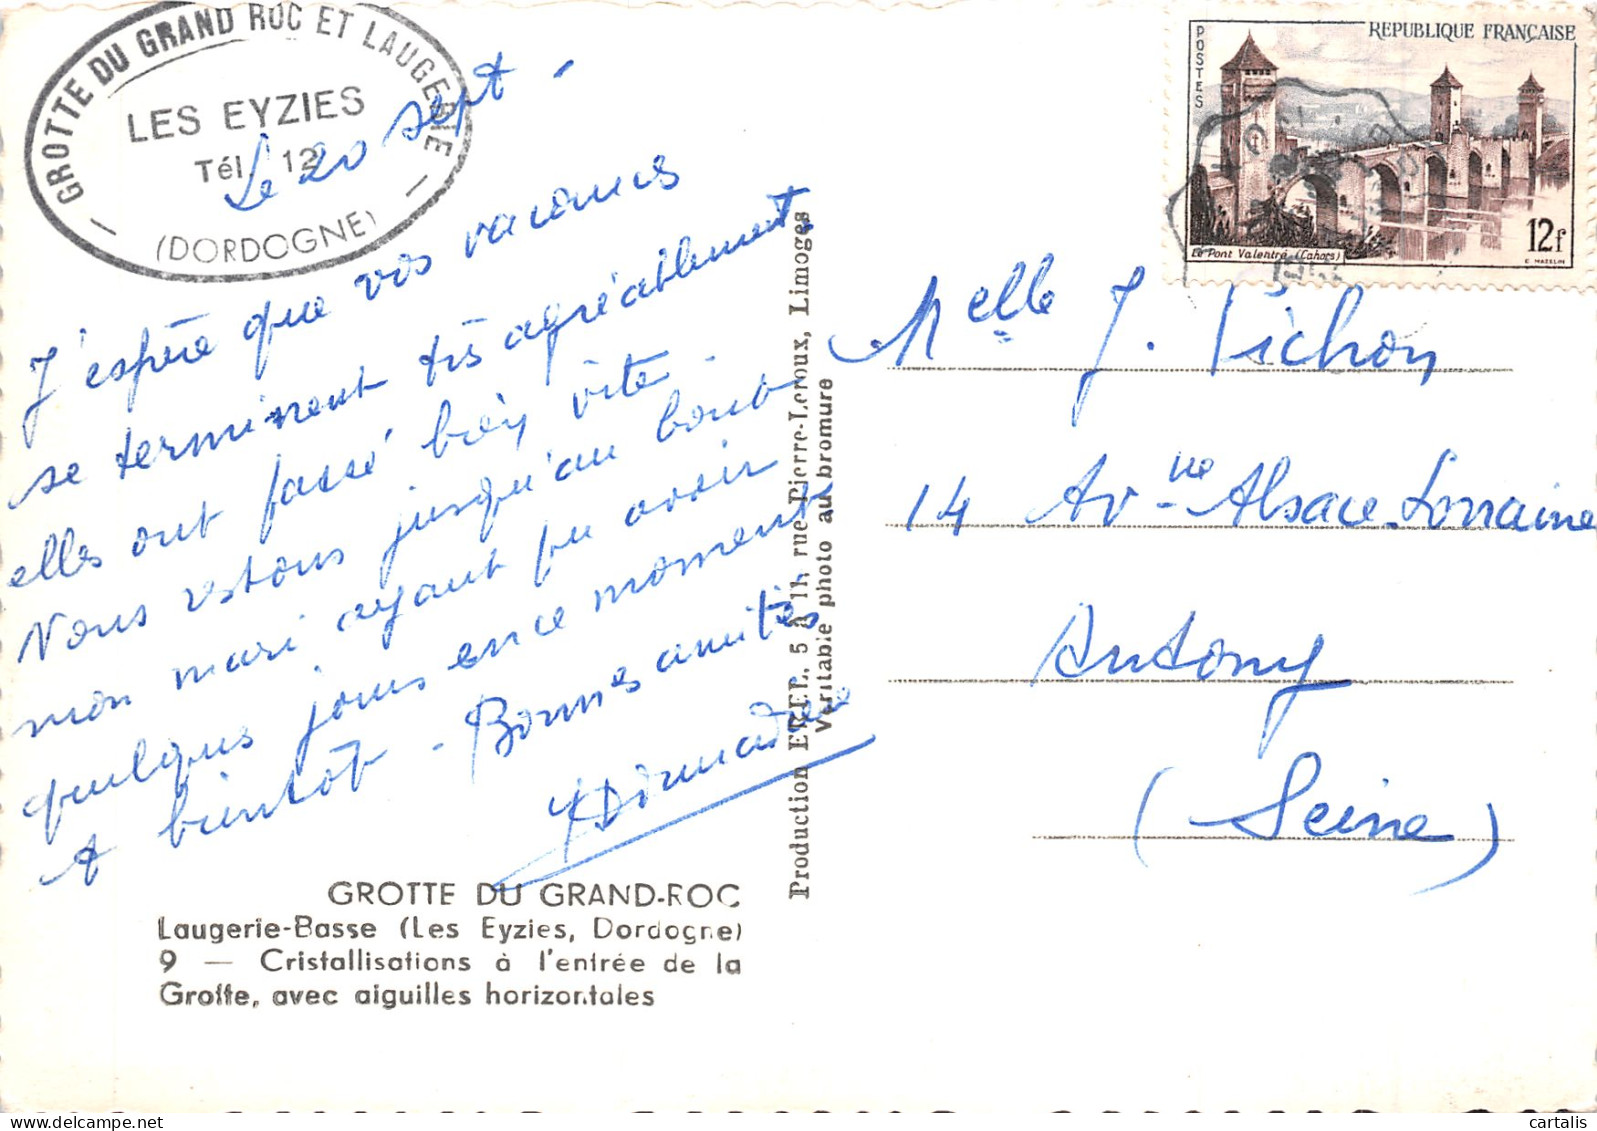 GROTTE DU GRAND ROC ET LAUGERIE
LES EYZIES
Tél. 12
(DORDOGNE)
Le 20 sept.
J'espère que vos vacances
se terminent très agréablement.
elles ont passé bien vite.
Nous restons jusqu'au bout
mon mari ayant pu avoir
quelques jours en ce moment
A bientôt - Bonnes amitiés
GROTTE DU GRAND-ROC
Laugerie-Basse (Les Eyzies, Dordogne)
9 — Cristallisations à l'entrée de la
Grotte, avec aiguilles horizontales
Production E.R.P.L. 5 & 11, rue Pierre-Leroux, Limoges
Véritable photo au bromure
REPUBLIQUE FRANÇAISE
POSTES
12f
Le Pont Valentré (Cahors)
C. MAZELIN
Melle J. Pichon
14 Avnue Alsace-Lorraine
Antony
(Seine)
cartalis